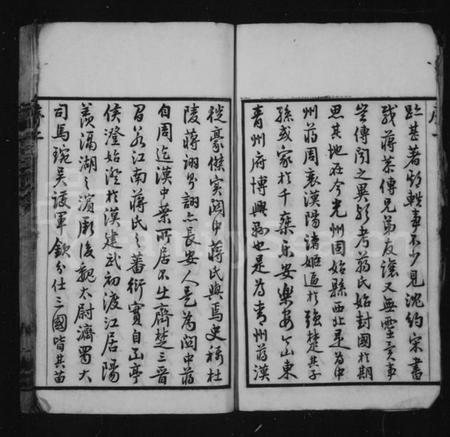 序
跡甚著顧軼事不少見沈約宋書
蔣恭傳兄弟友讓又無靈異事
豈傳聞之異歟考蔣氏始封國於期
思其地在今光州固始縣西北是為中
州蔣周衰漢陽諸姬逼於強楚其子
孫或家於千乘樂安樂安今山東
青州府博興縣也是為青州蔣漢
徙豪傑實關中蔣氏與焉史稱杜
陵蔣詡亦長安人是為關中蔣
自周迄漢中葉所居不出齊楚三晉
間若江南蔣氏之蕃衍實自亭
侯澄始澄於漢建武初渡江居陽
羨滆湖之濱厥後魏太尉濟蜀大
司馬琬吳護軍欽分仕三國皆其苗